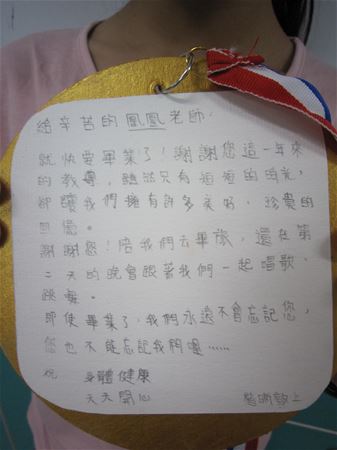 給辛苦的鳳凰老師，
就快要畢業了！謝謝您這一年來
的教導，雖然只有短短的時光，
卻讓我們擁有許多美好、珍貴的
回憶。
謝謝您！陪我們去畢旅，還在第
二天的晚會跟著我們一起唱歌、
跳舞。
即使畢業了，我們永遠不會忘記您，
您也不能忘記我們喔……
祝 身體健康
天天開心
敬上